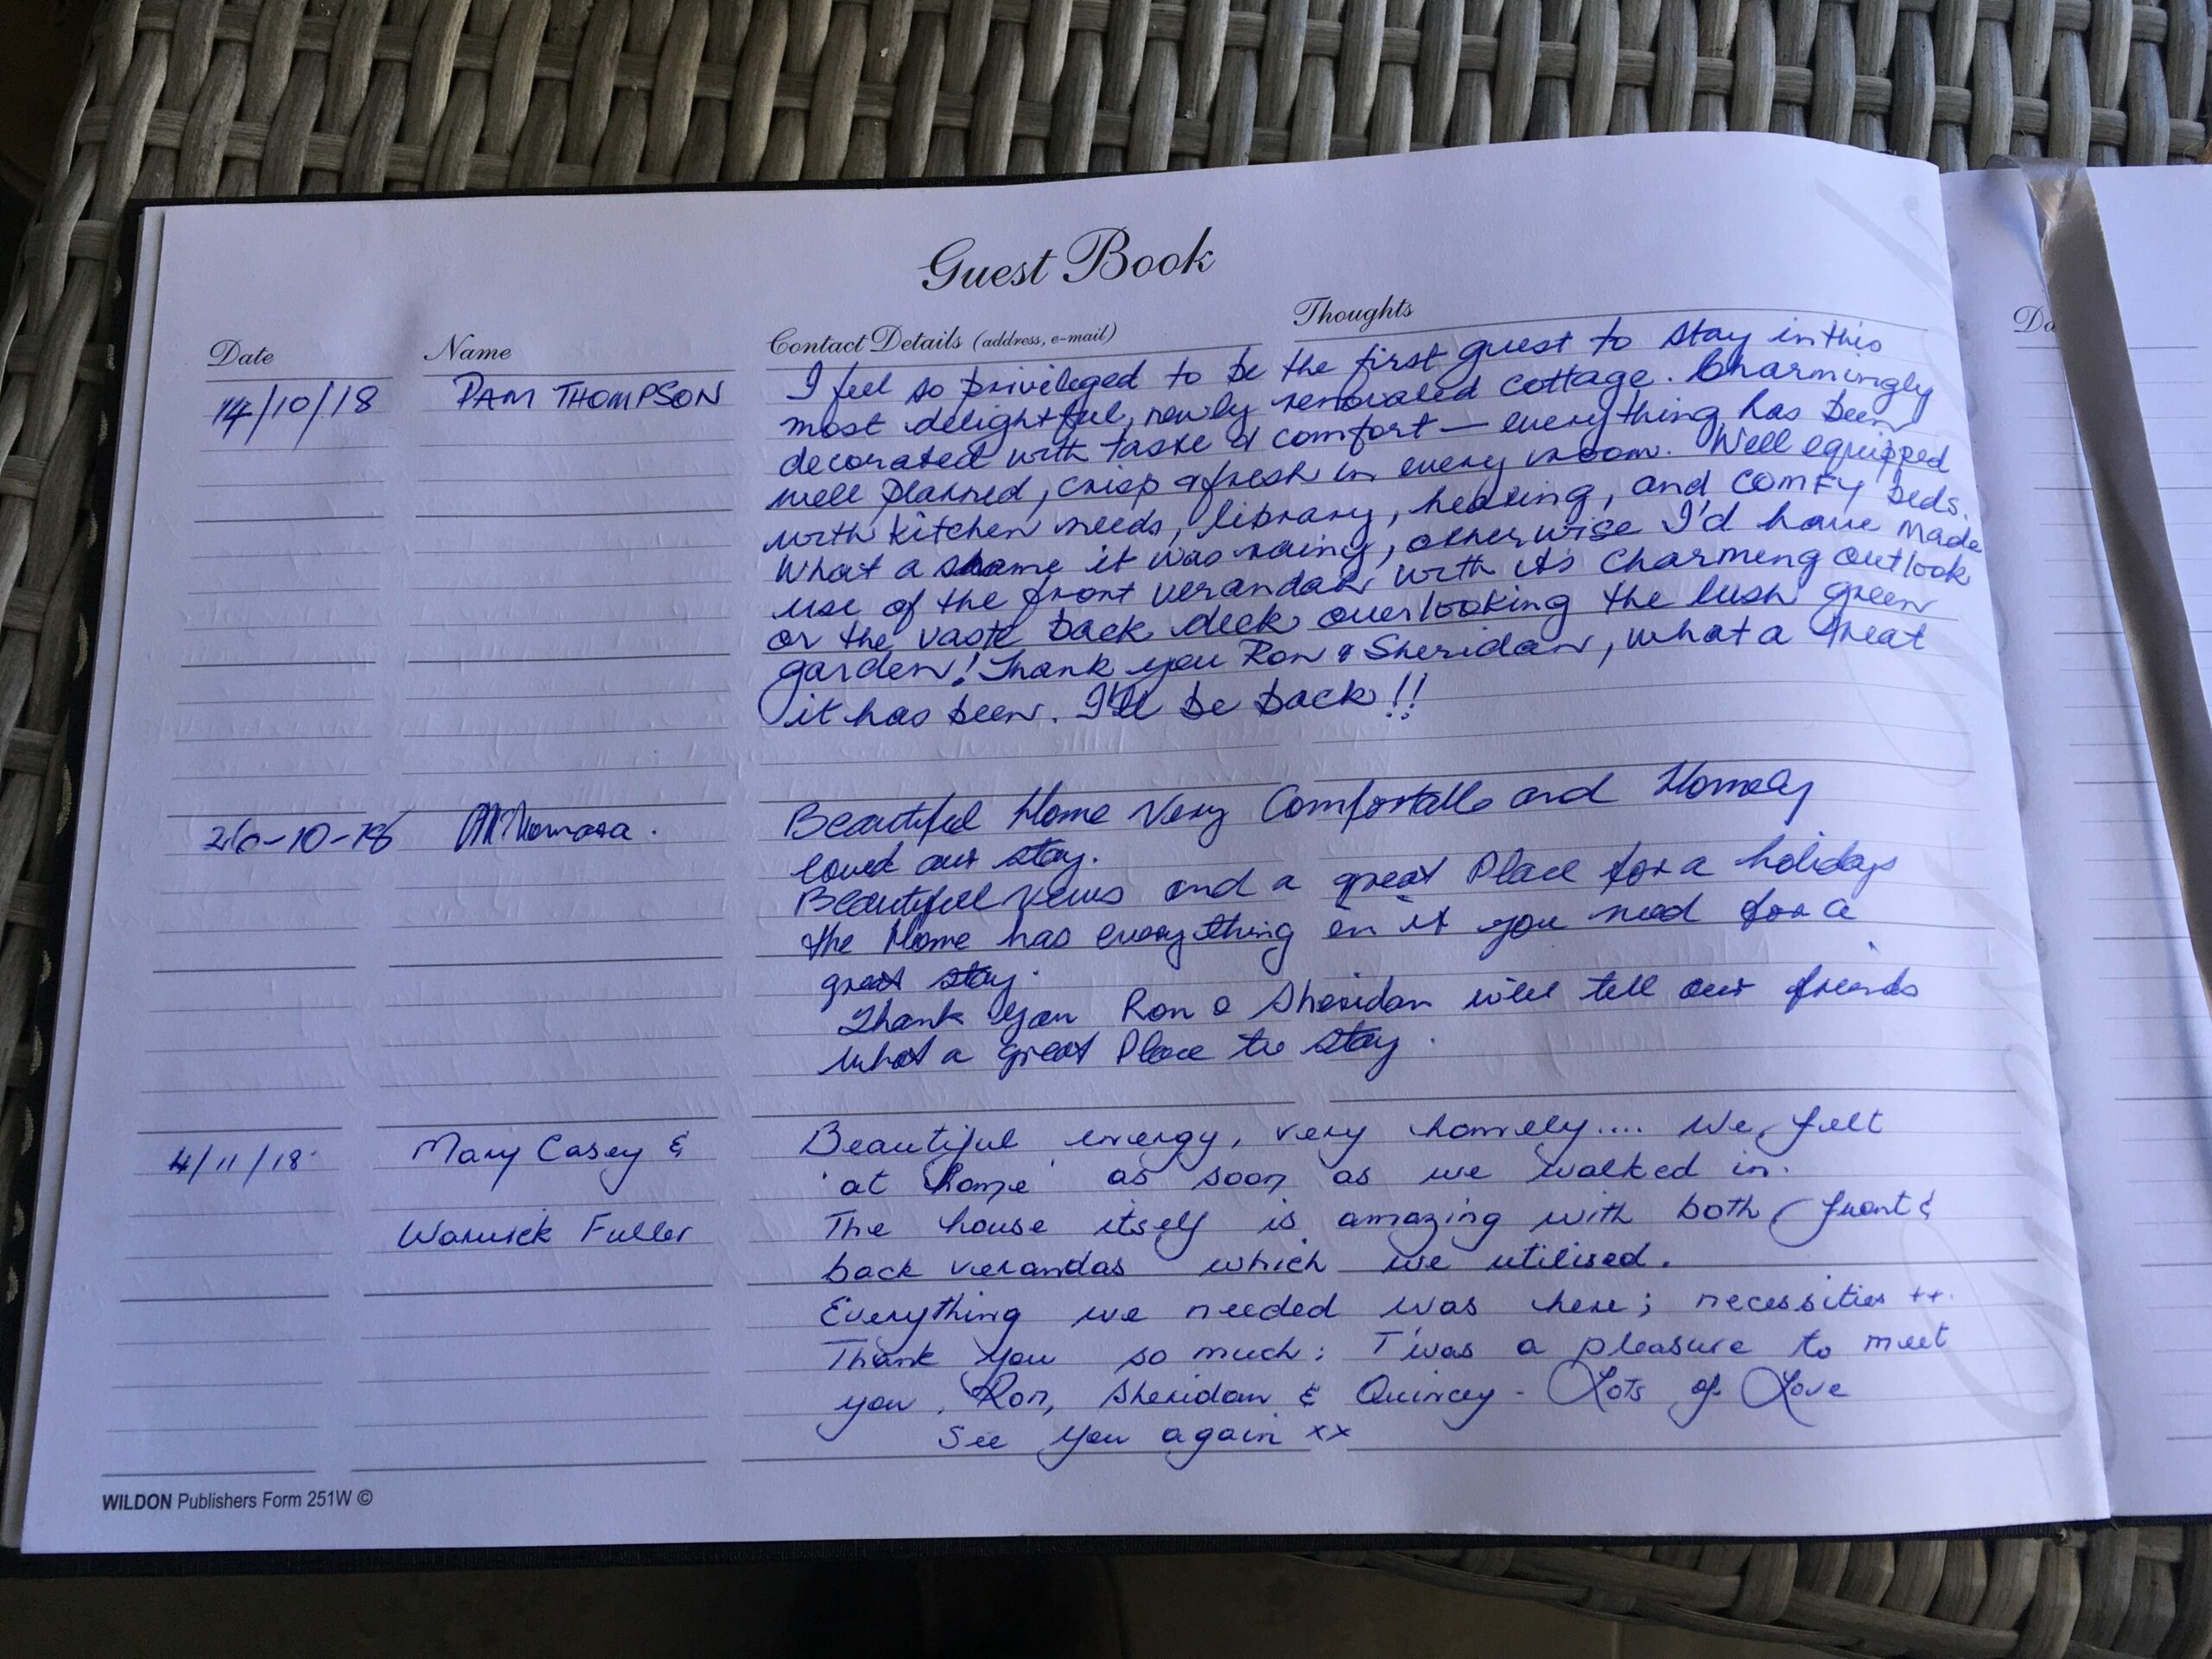 Guest Book
Date Name Contact Details (address, e-mail) Thoughts
14/10/18 PAM THOMPSON I feel so privileged to be the first guest to stay in this
most delightful, newly renovated cottage. Charmingly
decorated with taste & comfort – everything has been
well planned, crisp & fresh in every room. Well equipped
with kitchen needs, library, heating, and comfy beds.
What a shame it was rainy, otherwise I'd have made
use of the front verandah with its charming outlook
or the vaste back deck overlooking the lush green
garden! Thank you Ron & Sheridan, what a treat
it has been. I'll be back!!
26-10-18 Beautiful Home Very Comfortable and Homely
loved our stay.
Beautiful Views and a great Place for a holiday
the Home has everything in it you need for a
great stay.
Thank You Ron & Sheridan will tell our friends
what a great Place to stay.
4/11/18 Mary Casey & Beautiful energy, very homely.... We felt
'at home' as soon as we walked in.
Warwick Fuller The house itself is amazing with both front &
back verandas which we utilised.
Everything we needed was here; necessities ++.
Thank you so much: T'was a pleasure to meet
you, Ron, Sheridan & Quincey - Lots of Love
See you again xx
WILDON Publishers Form 251W ©
Da